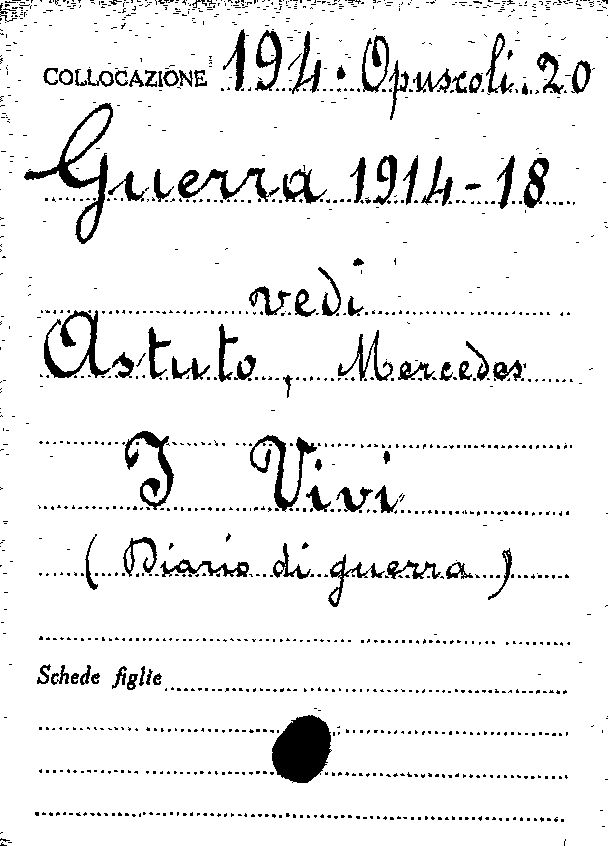 COLLOCAZIONE 194. Opuscoli. 20
Guerra 1914-18
vedi
Astuto, Mercedes
I Vivi
(Diario di guerra)
Schede figlie